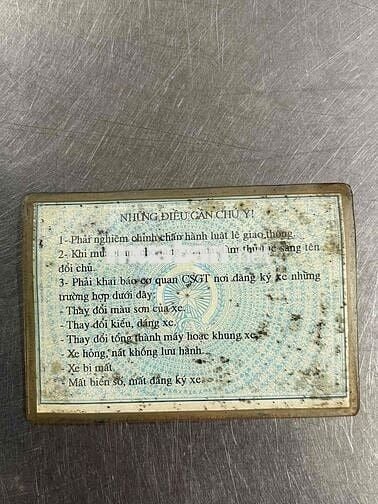 NHỮNG ĐIỀU CẦN CHÚ Ý!
1- Phải nghiêm chỉnh chấp hành luật lệ giao thông.
2- Khi sang tên
đổi chủ.
3- Phải khai báo cơ quan CSGT nơi đăng ký xe những
trường hợp dưới đây:
- Thay đổi màu sơn của xe.
- Thay đổi kiểu, dáng xe.
- Thay đổi tổng thành máy hoặc khung xe.
- Xe hỏng, nát không lưu hành.
- Xe bị mất.
- Mất biển số, mất đăng ký xe.